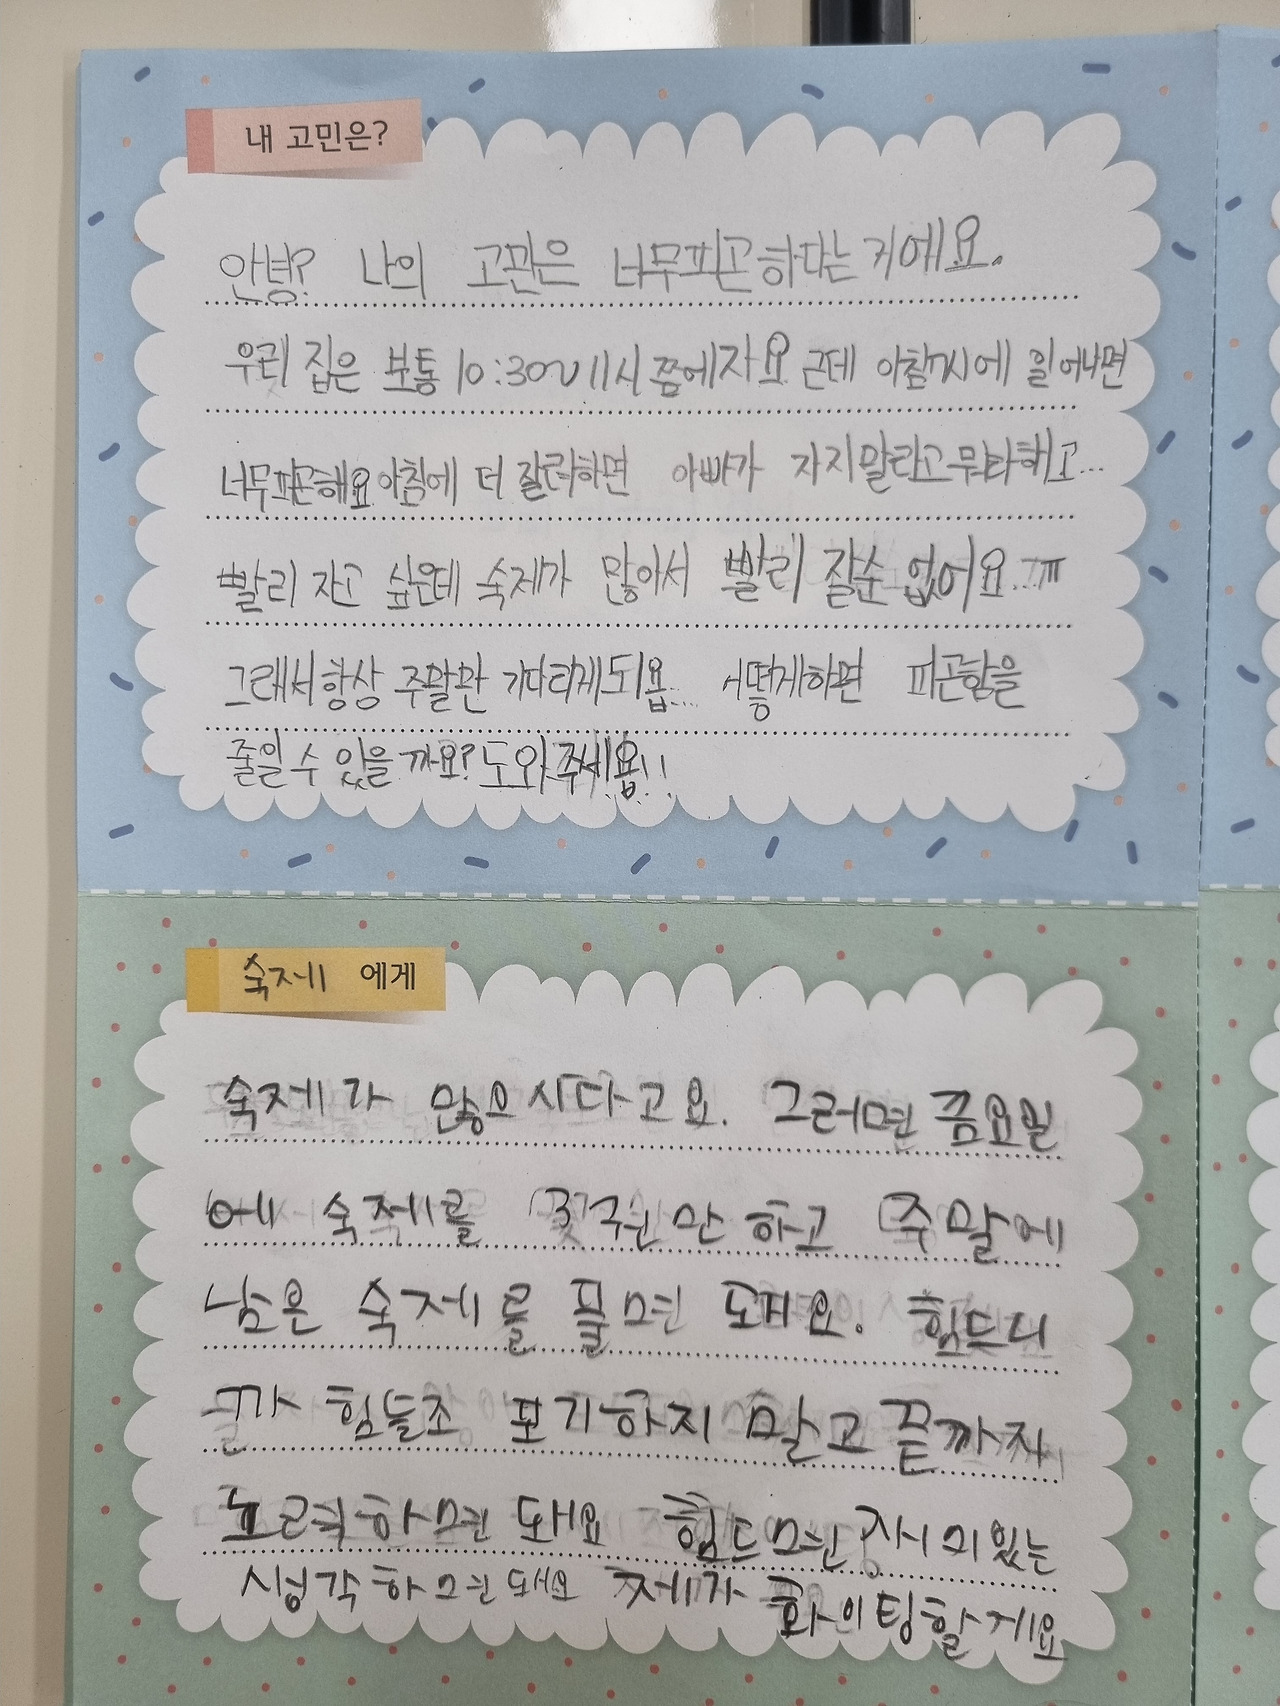 내 고민은?
안녕? 나의 고민은 너무피곤하다는거에요.
우리 집은 보통 10:30~11시쯤에자요 근데 아침7시에 일어나면
너무피곤해요아침에 더 잘려하면 아빠가 자지말라고뭐라해고...
빨리 자고 싶은데 숙제가 많아서 빨리 잘순 없어요..ㅠ
그래서항상 주말만 기다리게되욥... 어떻게하면 피곤함을
줄일수 있을까요? 도와주세욥!!
숙제 에게
숙제가 많으시다고요. 그러면 금요일
에 숙제를 만 하고 주말에
남은 숙제를 풀면 돼요. 힘드니
까 힘들조 포기하지 말고 끝까지
노력하면 돼요 힘드면 재미있는
생각하면 돼요 제가 화이팅할게요